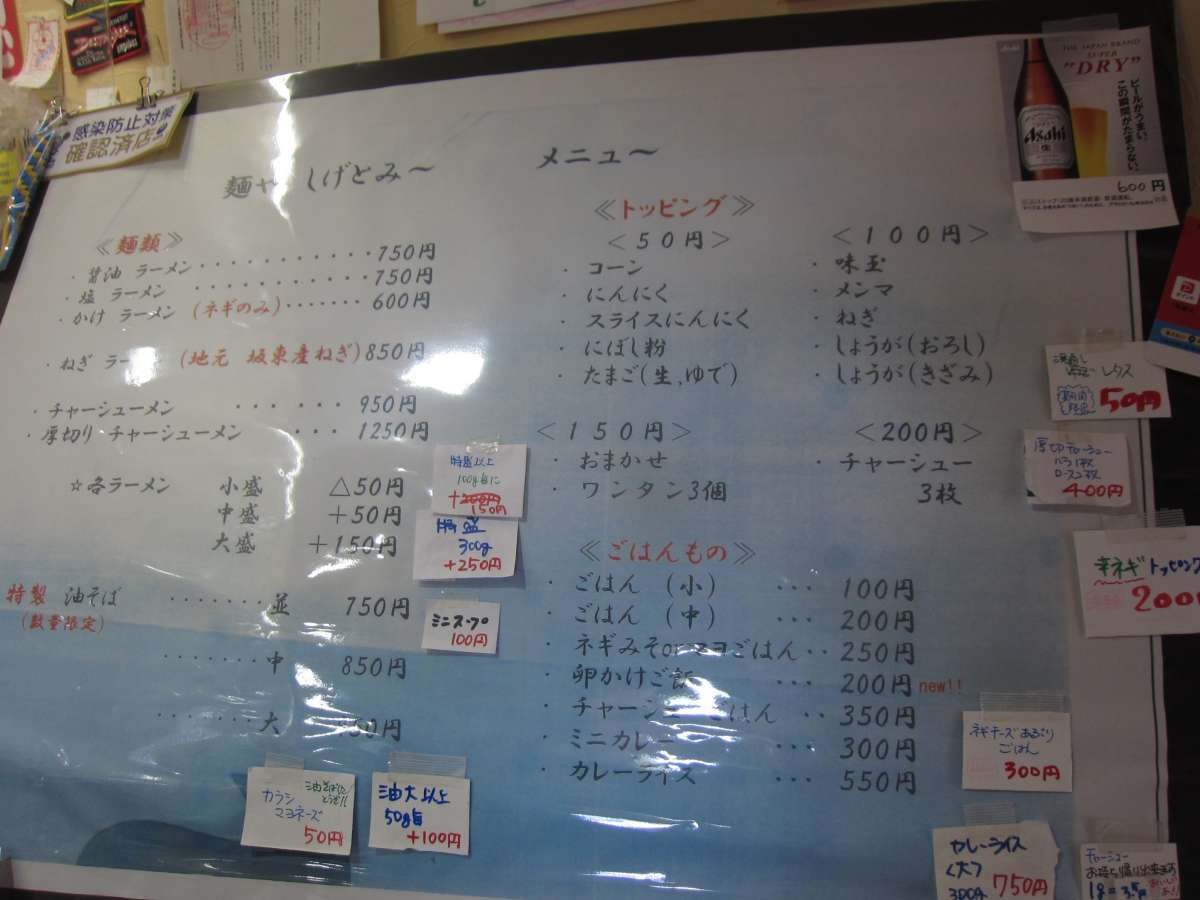 感染防止対策
確認済店
麺や しげとみ～ メニュ～
THE JAPAN BRAND
SUPER
"DRY"
ビールがうまい。
この瞬間がたまらない。
Asahi
生
600円
≪麺類≫
・醤油 ラーメン・・・・・・・・・・・・750円
・塩 ラーメン・・・・・・・・・・・・・750円
・かけ ラーメン (ネギのみ)・・・・・・・600円
・ねぎ ラーメン (地元 坂東産ねぎ)850円
・チャーシューメン ・・・ ・・・ 950円
・厚切り・チャーシューメン ・・・ 1250円
☆各ラーメン 小盛 △50円
中盛 +50円
大盛 +150円
特盛以上
100g毎に
150円
特盛
300g
+250円
特製 油そば ・・・・・・・ 並 750円
(数量限定)
・・・・・・・ 中 850円
・・・・・・・ 大 950円
ミニスープ
100円
カラシ
マヨネーズ
50円
油大以上
50g毎
+100円
≪トッピング≫
<50円>
・コーン
・にんにく
・スライスにんにく
・にぼし粉
・たまご(生,ゆで)
<100円>
・味玉
・メンマ
・ねぎ
・しょうが(おろし)
・しょうが(きざみ)
<150円>
・おまかせ
・ワンタン3個
<200円>
・チャーシュー
3枚
≪ごはんもの≫
・ごはん (小) ・・・ 100円
・ごはん (中) ・・・ 200円
・ネギみそorマヨごはん・・ 250円
・卵かけご飯 200円new!!
・チャーシューごはん ・・ 350円
・ミニカレー ・・・ 300円
・カレーライス ・・・ 550円
レタス
50円
厚切チャーシュー
バラ1枚
ロース2枚
400円
辛ネギトッピング
200円
ネギチーズあぶり
ごはん
300円
カレーライス
<大>
300g 750円
チャーシュー
お持ち帰り出来ます